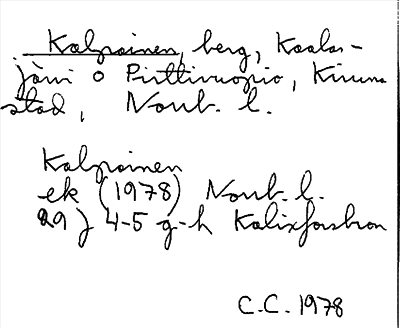 Kalpainen, berg, Kaalas-
järvi o Pirttivuopio, Kiruna
stad, Norrb. l.
Kalpainen
ek (1978) Norrb. l.
29 J 4-5 g-h Kalixforsbron
C.C. 1978